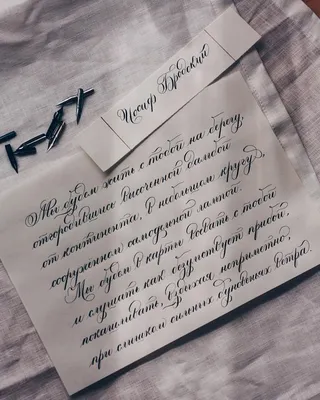 Иосиф Бродский
Мы будем жить с тобой на берегу,
отгородившись высоченной дамбой
от континента, в небольшом кругу,
сооруженном самодельной лампой.
Мы будем в карты воевать с тобой
и слушать как безумствует прибой,
покашливать, вздыхая неприметно,
при слишком сильных дуновеньях ветра.